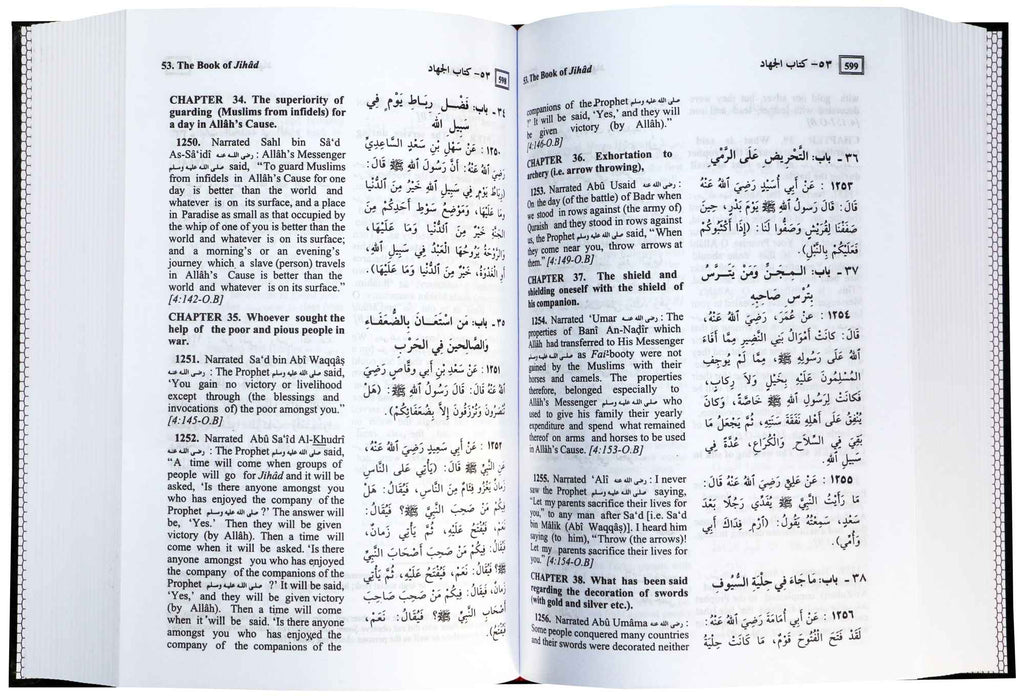 53. The Book of Jihâd
٥٣ - كتاب الجهاد
598
CHAPTER 34. The superiority of
guarding (Muslims from infidels) for
a day in Allâh's Cause.
1250. Narrated Sahl bin Sâ'd
As-Sâ'idî رضى الله عنه : Allâh's Messenger
صلى الله عليه وسلم said, "To guard Muslims
from infidels in Allâh's Cause for one
day is better than the world and
whatever is on its surface, and a place
in Paradise as small as that occupied by
the whip of one of you is better than the
world and whatever is on its surface;
and a morning's or an evening's
journey which a slave (person) travels
in Allâh's Cause is better than the
world and whatever is on its surface."
[4:142-O.B]
CHAPTER 35. Whoever sought the
help of the poor and pious people in
war.
1251. Narrated Sa'd bin Abî Waqqâṣ
رضى الله عنه : The Prophet صلى الله عليه وسلم said,
'You gain no victory or livelihood
except through (the blessings and
invocations of) the poor amongst you."
[4:145-O.B]
1252. Narrated Abû Sa'îd Al-Khudrî
رضى الله عنه : The Prophet صلى الله عليه وسلم said,
"A time will come when groups of
people will go for Jihâd and it will be
asked, 'Is there anyone amongst you
who has enjoyed the company of the
Prophet صلى الله عليه وسلم ?' The answer will
be, 'Yes.' Then they will be given
victory (by Allâh). Then a time will
come when it will be asked. 'Is there
anyone amongst you who has enjoyed
the company of the companions of the
Prophet صلى الله عليه وسلم ?' It will be said,
'Yes,' and they will be given victory
(by Allâh). Then a time will come
when it will be said. 'Is there anyone
amongst you who has enjoyed the
company of the companions of the
٣٤ - باب: فَضْلِ رِبَاطِ يَوْمٍ فِي
سَبِيلِ الله
١٢٥٠ : عَنْ سَهْلِ بْنِ سَعْدٍ السَّاعِدِيِّ
رَضِيَ اللهُ عَنْهُ: أَنَّ رَسُولَ اللهِ ﷺ قَالَ:
(رِبَاطُ يَوْمٍ فِي سَبِيلِ اللهِ خَيْرٌ مِنَ الدُّنْيَا
وَمَا عَلَيْهَا، وَمَوْضِعُ سَوْطِ أَحَدِكُمْ مِنَ
الجَنَّةِ خَيْرٌ مِنَ الدُّنْيَا وَمَا عَلَيْهَا،
وَالرَّوْحَةُ يَرُوحُهَا العَبْدُ فِي سَبِيلِ اللهِ،
أَوِ الْغَدْوَةُ، خَيْرٌ مِنَ الدُّنْيَا وَمَا عَلَيْهَا).
٣٥ - باب: مَنِ اسْتَعَانَ بِالضُّعَفَاءِ
وَالصَّالِحِينَ فِي الحَرْبِ
١٢٥١ : عَنْ سَعْدِ بْنِ أَبِي وَقَّاصٍ رَضِيَ
اللهُ عَنْهُ قَالَ: قَالَ رَسُولُ اللهِ ﷺ: (هَلْ
تُنْصَرُونَ وَتُرْزَقُونَ إِلَّا بِضُعَفَائِكُمْ).
١٢٥٢ : عَنْ أَبِي سَعِيدٍ رَضِيَ اللهُ عَنْهُ،
عَنِ النَّبِيِّ ﷺ قَالَ: (يَأْتِي عَلَى النَّاسِ
زَمَانٌ يَغْزُو فِئَامٌ مِنَ النَّاسِ، فَيُقَالُ: هَلْ
فِيكُمْ مَنْ صَحِبَ النَّبِيَّ ﷺ؟ فَيُقَالُ:
نَعَمْ، فَيُفْتَحُ عَلَيْهِ، ثُمَّ يَأْتِي زَمَانٌ،
فَيُقَالُ: فِيكُمْ مَنْ صَحِبَ أَصْحَابَ النَّبِيِّ
ﷺ؟ فَيُقَالُ: نَعَمْ، فَيُفْتَحُ، ثُمَّ يَأْتِي
زَمَانٌ، فَيُقَالُ: فِيكُمْ مَنْ صَحِبَ صَاحِبَ
أَصْحَابِ النَّبِيِّ ﷺ؟ فَيُقَالُ: نَعَمْ،
فَيُفْتَحُ).
53. The Book of Jihâd
٥٣ - كتاب الجهاد
599
companions of the Prophet صلى الله عليه وسلم
?' It will be said, 'Yes,' and they will
be given victory (by Allâh)."
[4:146-O.B]
CHAPTER 36. Exhortation to
archery (i.e. arrow throwing),
1253. Narrated Abû Usaid رضى الله عنه :
On the day (of the battle) of Badr when
we stood in rows against (the army of)
Quraish and they stood in rows against
us, the Prophet صلى الله عليه وسلم said, "When
they come near you, throw arrows at
them." [4:149-O.B]
CHAPTER 37. The shield and
shielding oneself with the shield of
his companion.
1254. Narrated 'Umar رضى الله عنه : The
properties of Banî An-Naḍîr which
Allâh had transferred to His Messenger
صلى الله عليه وسلم as Fai'-booty were not
gained by the Muslims with their
horses and camels. The properties
therefore, belonged especially to
Allâh's Messenger صلى الله عليه وسلم who
used to give his family their yearly
expenditure and spend what remained
thereof on arms and horses to be used
in Allâh's Cause. [4:153-O.B]
1255. Narrated 'Alî رضى الله عنه : I never
saw the Prophet صلى الله عليه وسلم saying,
"Let my parents sacrifice their lives for
you," to any man after Sa'd [i.e. Sa'd
bin Mâlik (Abî Waqqâs)]. I heard him
saying (to him), "Throw (the arrows)!
Let my parents sacrifice their lives for
you." [4:154-O.B]
CHAPTER 38. What has been said
regarding the decoration of swords
(with gold and silver etc.).
1256. Narrated Abû Umâma رضى الله عنه :
Some people conquered many countries
and their swords were decorated neither
٣٦ - باب: التَّحْرِيضِ عَلَى الرَّمْيِ
١٢٥٣ : عَنْ أَبِي أُسَيْدٍ رَضِيَ اللهُ عَنْهُ
قَالَ: قَالَ رَسولُ اللهِ ﷺ يَوْمَ بَدْرٍ، حِينَ
صَفَفْنَا لِقُرَيْشٍ وَصَفُّوا لَنَا: (إِذَا أَكْثَبُوكُمْ
فَعَلَيْكُمْ بِالنَّبْلِ).
٣٧ - باب: الـمِـجَـنِّ وَمَنْ يَـتَـرَّسُ
بِتُرْسِ صَاحِبِهِ
١٢٥٤ : عَنْ عُمَرَ، رَضِيَ اللهُ عَنْهُ،
قَالَ: كَانَتْ أَمْوَالُ بَنِي النَّضِيرِ مِمَّا أَفَاءَ
اللهُ عَلَى رَسُولِهِ ﷺ، مِمَّا لَمْ يُوجِفِ
المُسْلِمُونَ عَلَيْهِ بِخَيْلٍ وَلاَ رِكابٍ،
فَكَانَتْ لِرَسُولِ اللهِ ﷺ خَاصَّةً، وَكَانَ
يُنْفِقُ عَلَى أَهْلِهِ نَفَقَةَ سَنَتِهِ، ثُمَّ يَجْعَلُ مَا
بَقِيَ فِي السِّلَاحِ وَالْكُرَاعِ، عُدَّةً فِي
سَبِيلِ اللهِ.
١٢٥٥ : عَنْ عَلِيٍّ رَضِيَ اللهُ عَنْهُ قَالَ:
مَا رَأَيْتُ النَّبِيَّ ﷺ يُفَدِّي رَجُلًا بَعْدَ
سَعْدٍ، سَمِعْتُهُ يَقُولُ: (ارْمِ فِدَاكَ أَبِي
وَأُمِّي).
٣٨ - باب: مَا جَاءَ فِي حِلْيَةِ السُّيُوفِ
١٢٥٦ : عَنْ أَبِي أُمَامَةَ رَضِيَ اللهُ عَنْهُ:
لَقَدْ فَتَحَ الْفُتُوحَ قَوْمٌ، مَا كَانَتْ حِلْيَةُ